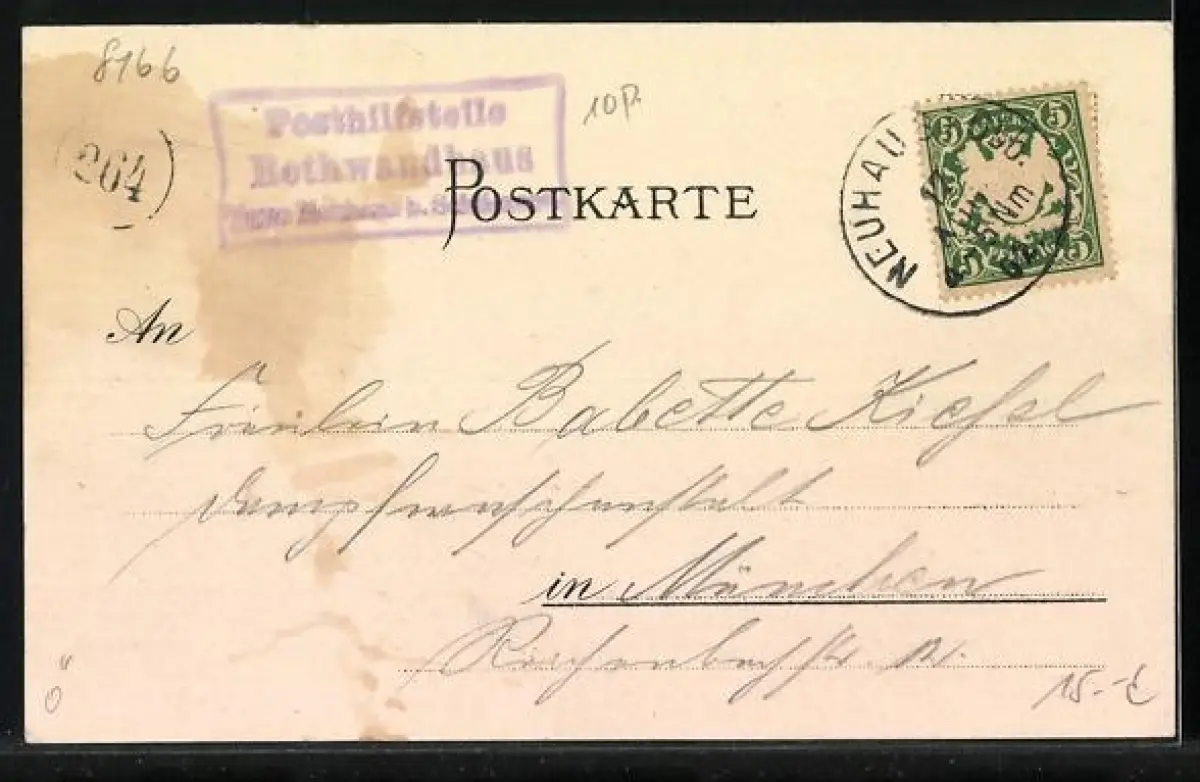 8166
(264)
Posthilfstelle
Rothwandhaus
10 P.
POSTKARTE
NEUHAU
5 5
Nm
5 5
An
Fräulein Babette Kiesel
Dampfwaschanstalt
in München
Reichenbachstr.
15.-